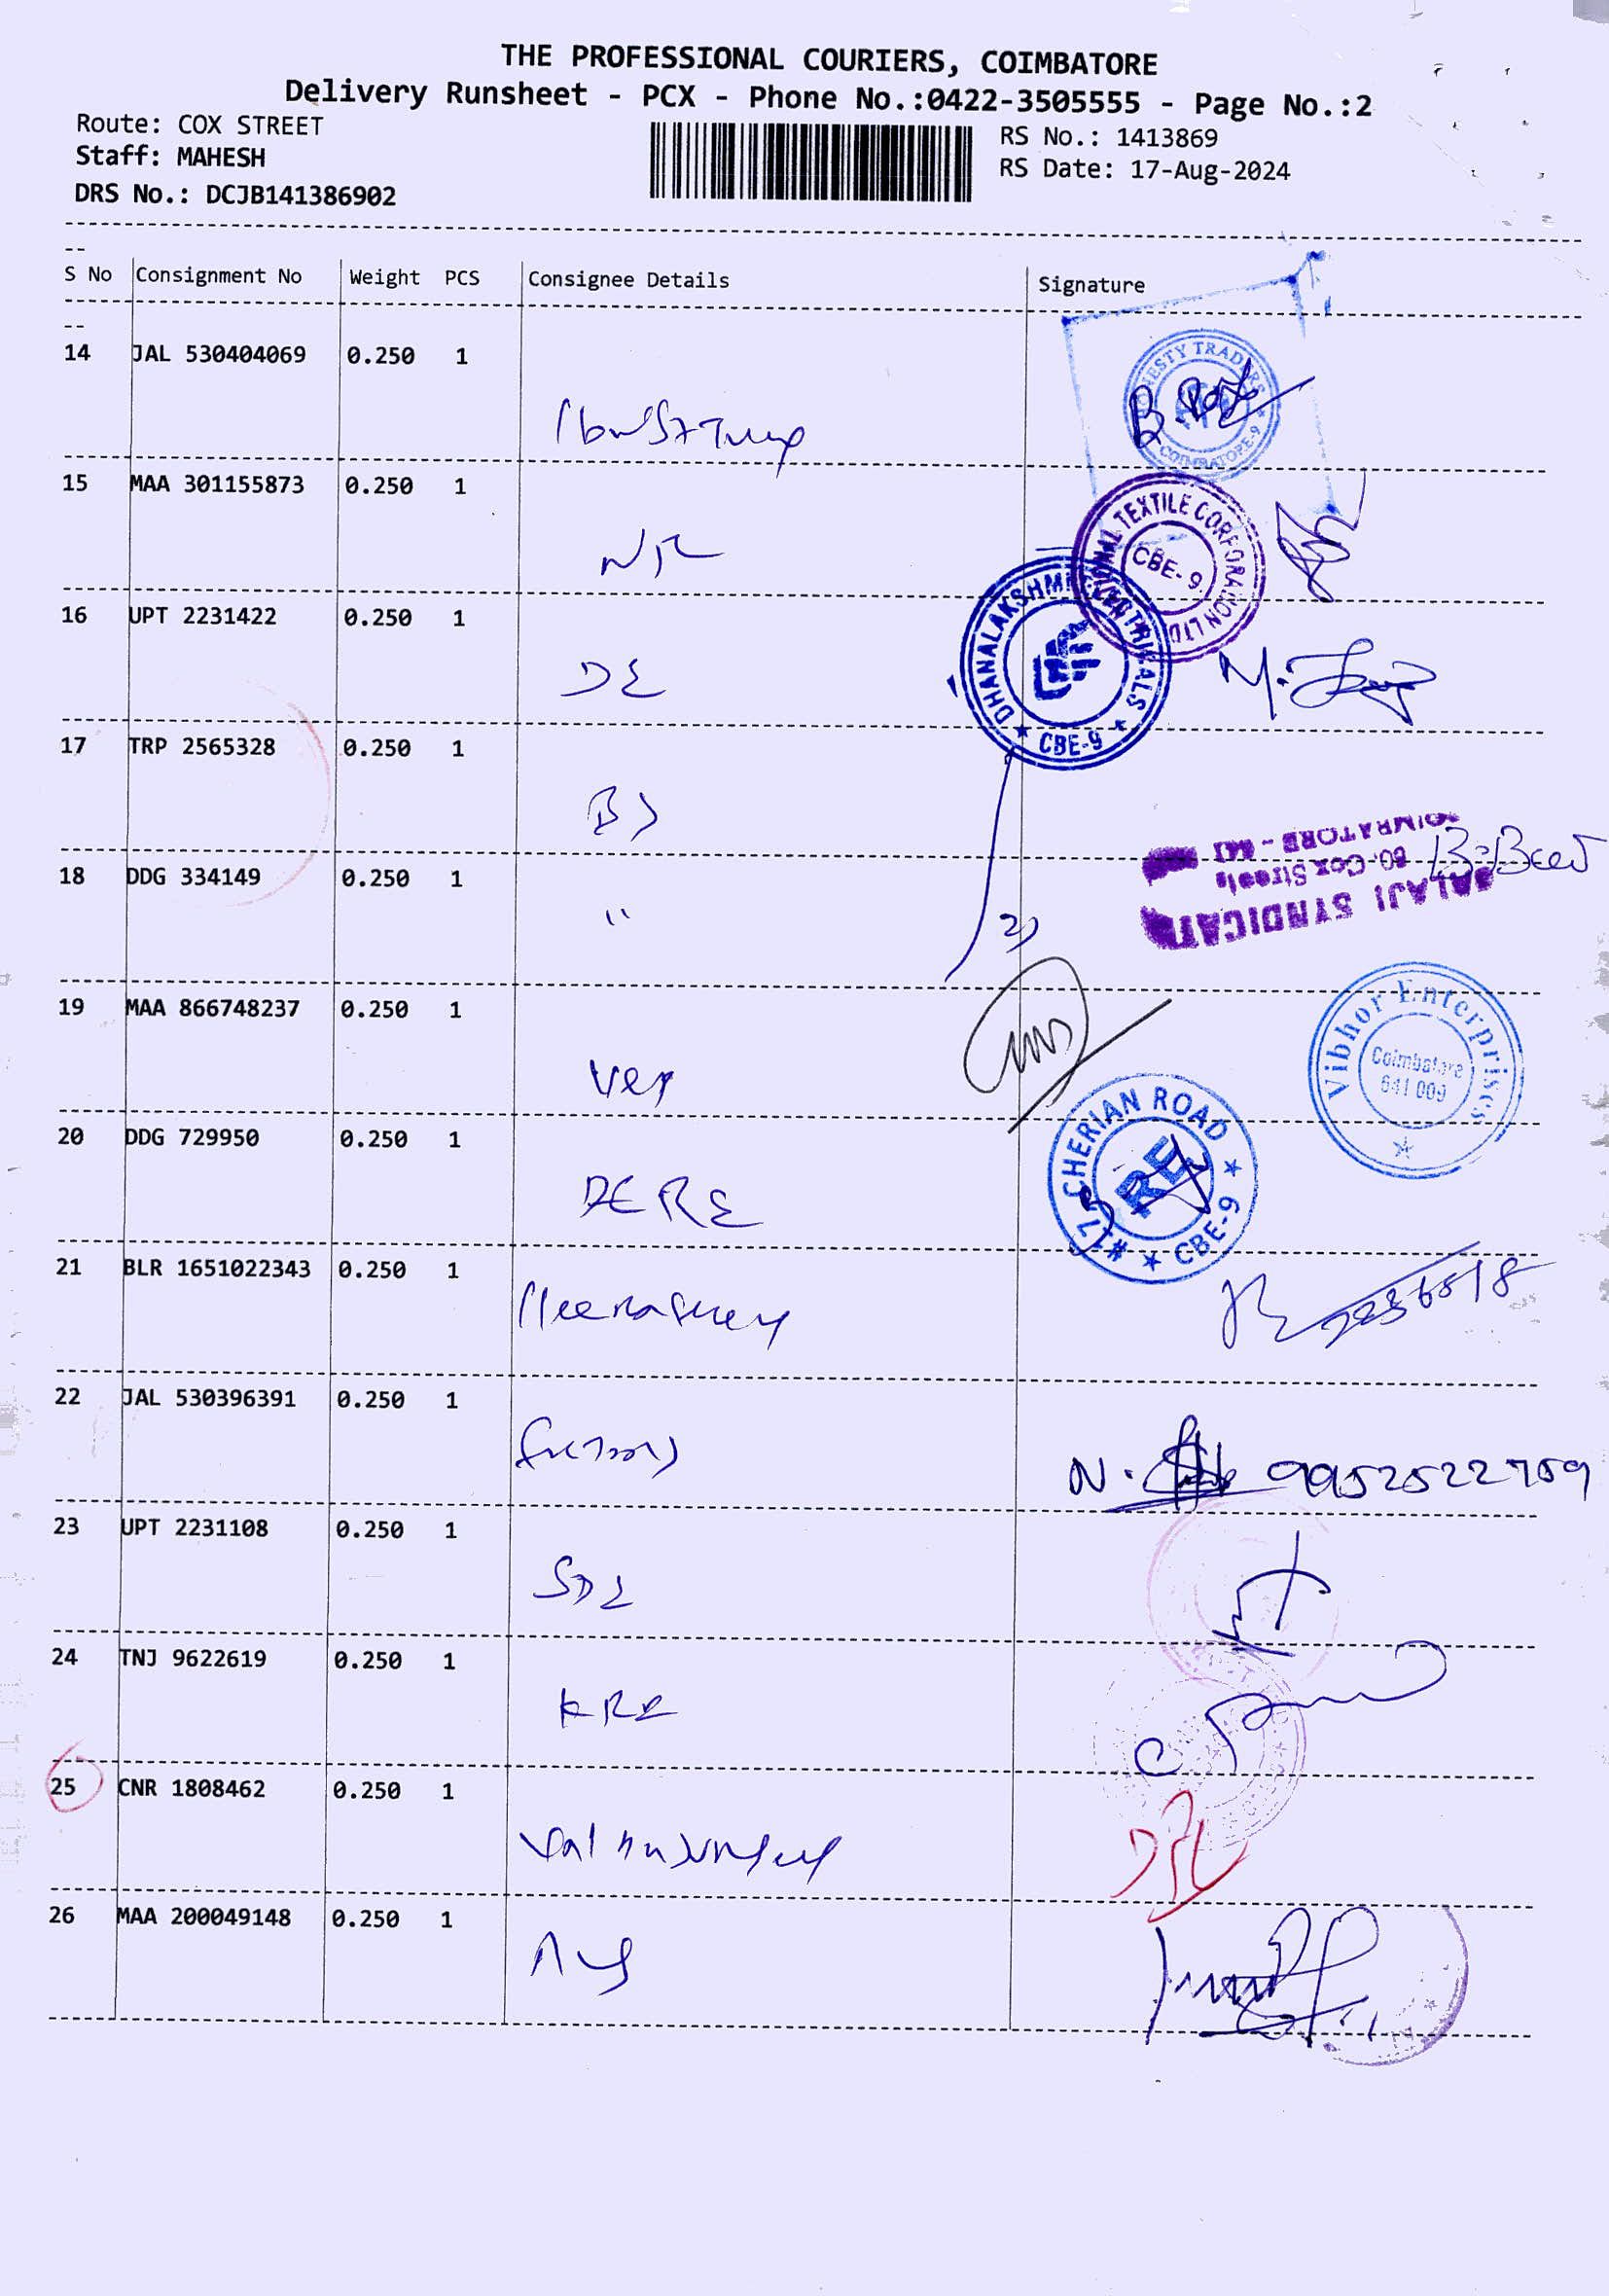 THE PROFESSIONAL COURIERS, COIMBATORE
Delivery Runsheet - PCX - Phone No.:0422-3505555 - Page No.:2
Route: COX STREET
Staff: MAHESH
DRS No.: DCJB141386902
RS No.: 1413869
RS Date: 17-Aug-2024
S No Consignment No Weight PCS Consignee Details Signature
14 JAL 530404069 0.250 1
HONESTY TRADERS
COIMBATORE-9
B.
15 MAA 301155873 0.250 1
TEXTILE CORPORATION LTD
CBE-9
16 UPT 2231422 0.250 1
DE
DHANALAKSHMI ELECTRICALS
CBE-9
M.
17 TRP 2565328 0.250 1
BS
BALAJI SYNDICATE
80, Cox Street,
COIMBATORE - 641
18 DDG 334149 0.250 1
"
2)
19 MAA 866748237 0.250 1
Ver
Vibhor Enterprises
Coimbatore
641 009
20 DDG 729950 0.250 1
DERE
#17 CHERIAN ROAD
RE
CBE-9
21 BLR 1651022343 0.250 1
22 JAL 530396391 0.250 1
N. 9952522759
23 UPT 2231108 0.250 1
SDE
24 TNJ 9622619 0.250 1
KRE
25 CNR 1808462 0.250 1
26 MAA 200049148 0.250 1